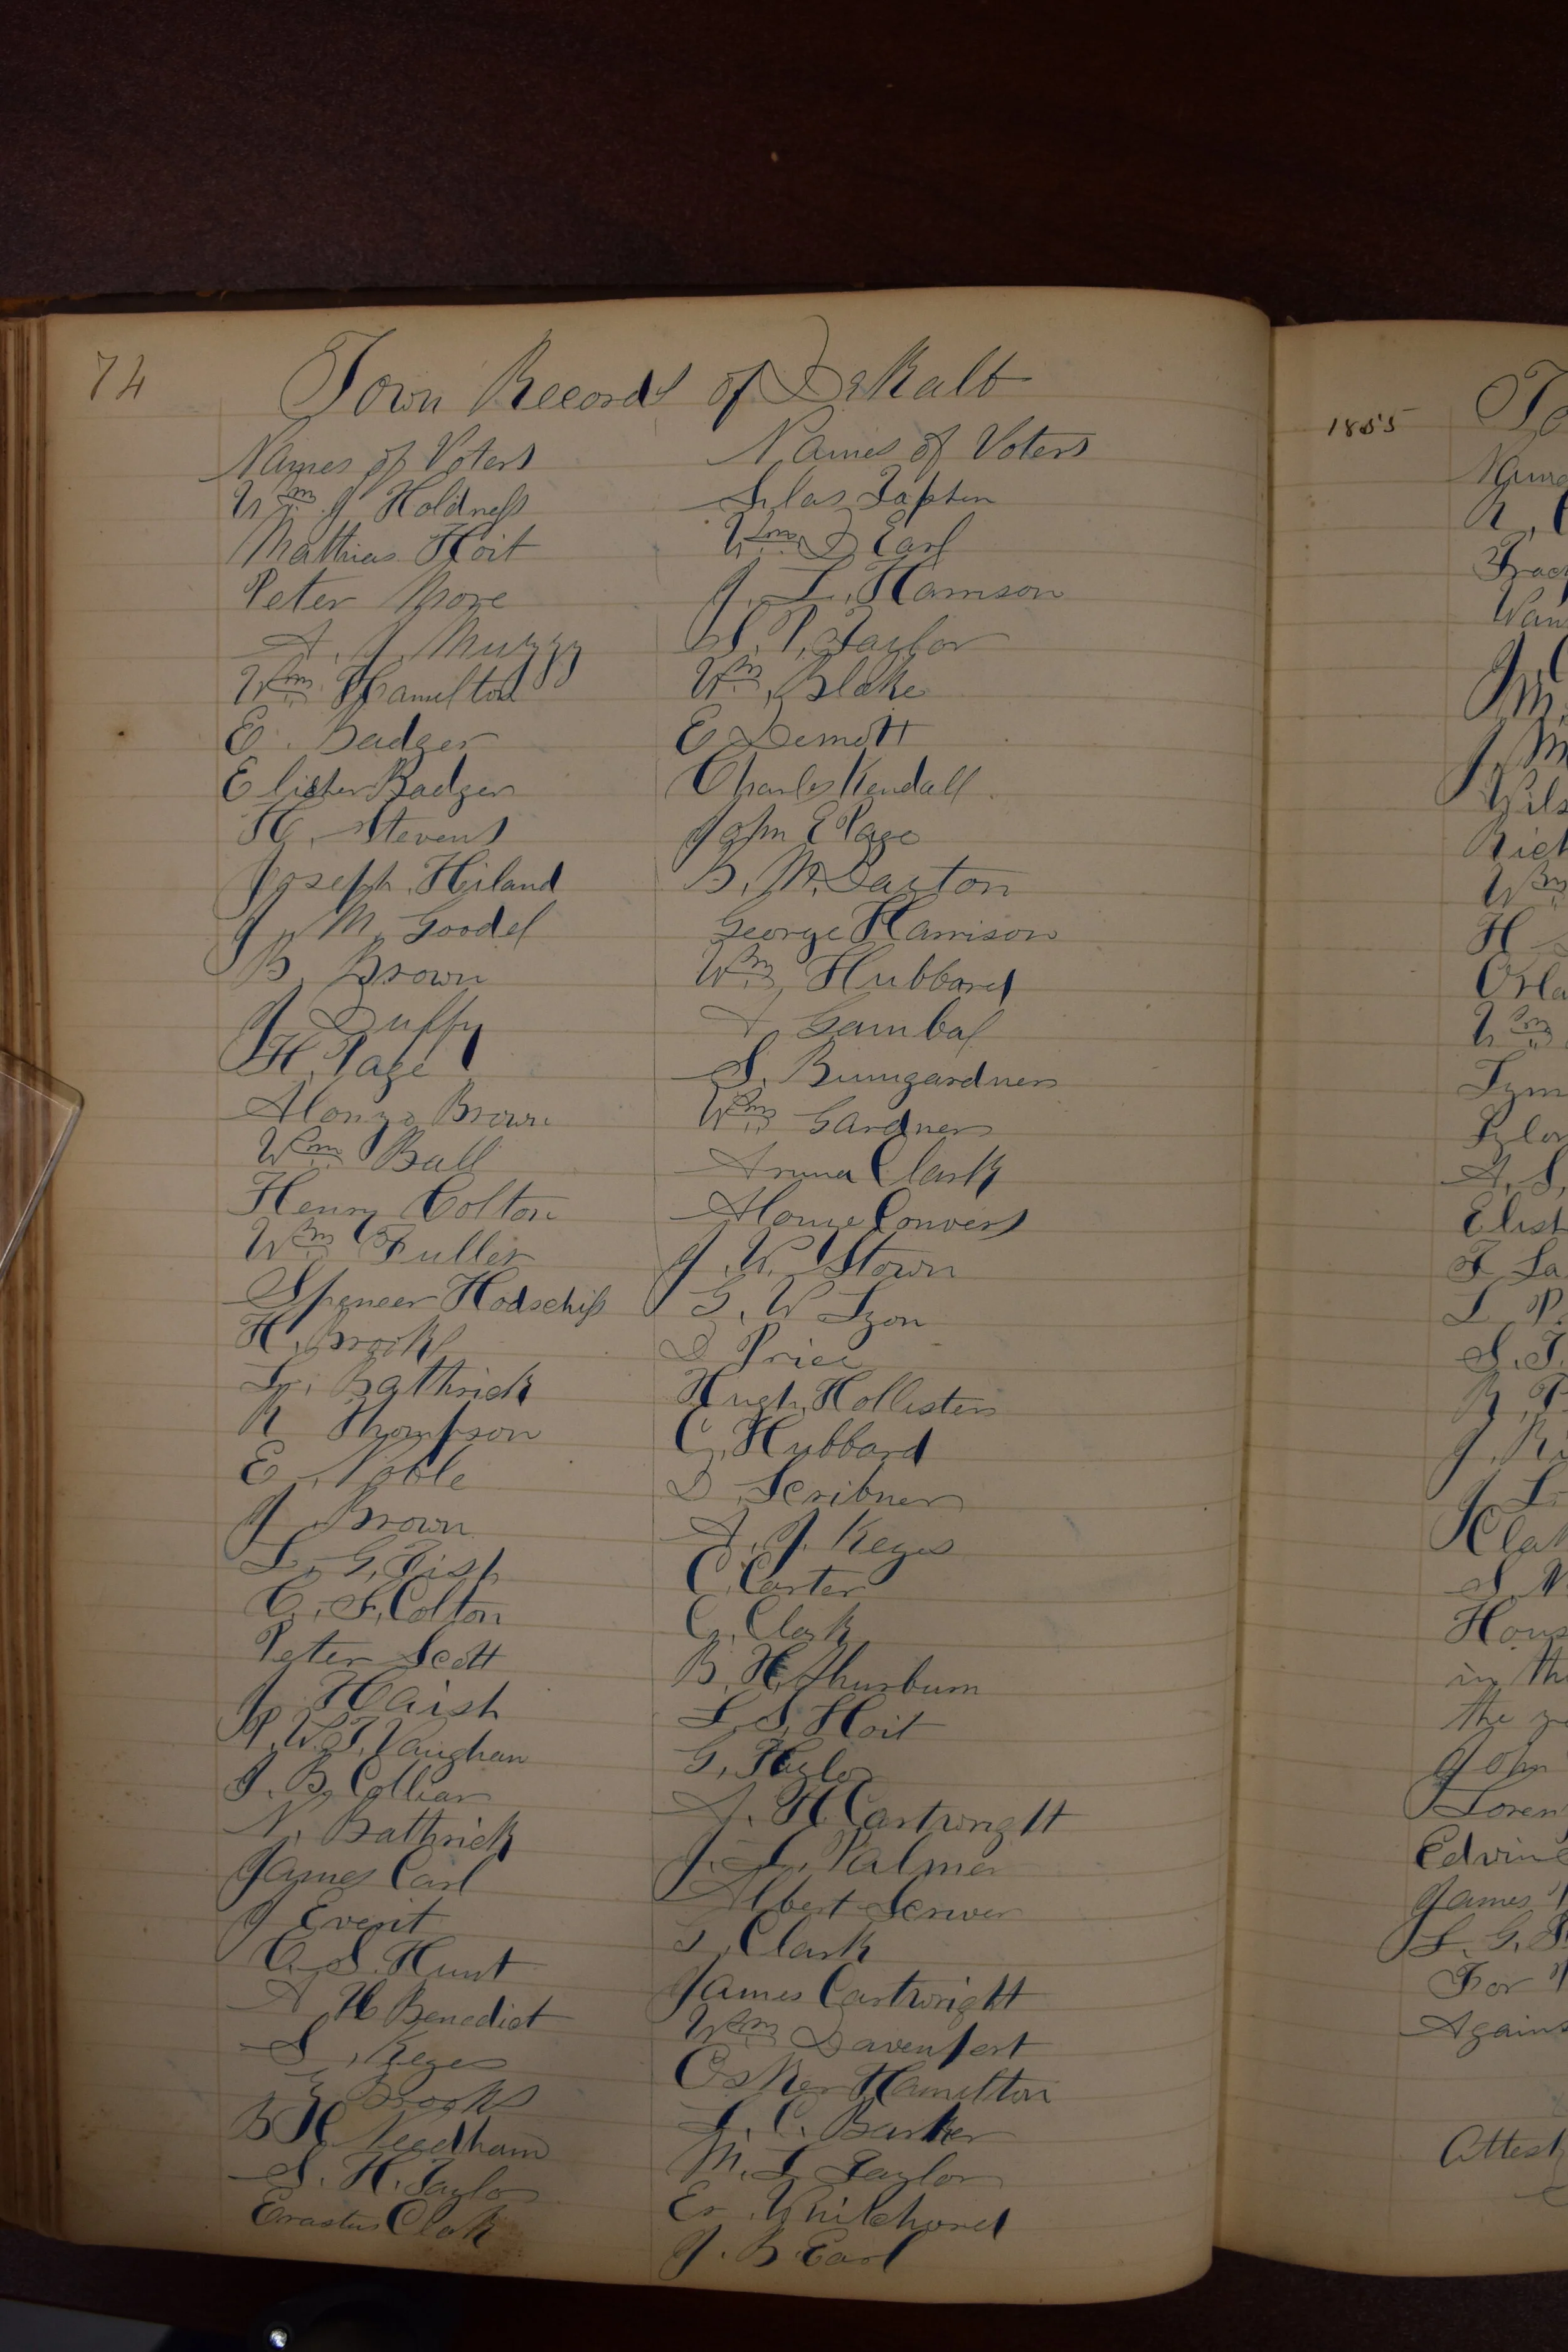 74
Town Records of DeKalb
Names of Voters
Wm J Holdness
Mathias Hoit
Peter More
A. J. Muzzy
Wm Hamilton
E. Badger
Badger
H. Stevens
Joseph Hiland
J M Goodel
B. Brown
J Duffy
H. Page
Alonzo Brown
Wm Ball
Henry Colton
Wm Fuller
Spencer
H. Brooks
L. Bathrick
R Thompson
E. Noble
J. Brown
L. G. Fish
C. F. Colton
Peter Scott
J. Haish
P. W. T. Vaughan
J. B. Colliar
N. Bathrick
James Carl
J Everit
C. S. Hunt
A H Benedict
S. Keyes
Brooks
B H Needham
S. H. Taylor
Erastus Clark
Names of Voters
Silas
Wm D Earl
J. L. Harrison
S. P. Taylor
Wm. Blake
E Demott
Charles Kendall
John E Page
B. M. Dayton
George Harrison
Wm, Hubbard
A Gambal
S. Bumgardner
Wm Gardner
Clark
Alonzo Convers
J. W. Stown
G. W Lyon
D Price
Hugh Hollister
G. Hubbard
D. Scribner
A. J. Keyes
C. Carter
G. Clark
B. H. Thurburn
L. S. Hoit
G. Taylor
A. H. Cartwright
J. L. Palmer
Albert
Clark
James Cartwright
Wm Davenport
Osker Hamilton
L. C. Barker
M. L Taylor
J. B. Earl
1855
To
Wm
H
Wm
A. S.
L P.
S. T.
in the
the
John
James
L. G.
For
Against
Attest